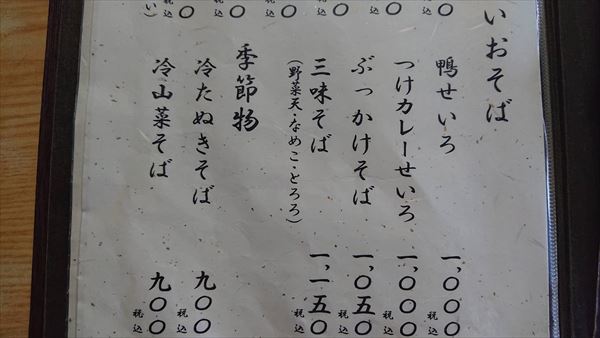 いおそば
鴨せいろ 一、〇〇〇 税込
つけカレーせいろ 一、〇〇〇 税込
ぶっかけそば 一、〇五〇 税込
三味そば 一、一五〇 税込
（野菜天・なめこ・とろろ）
季節物
冷たぬきそば 九〇〇 税込
冷山菜そば 九〇〇 税込